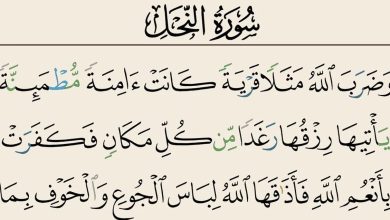 سُورَةُ النَّحْلِ
وَضَرَبَ اللَّهُ مَثَلًا قَرْيَةً كَانَتْ ءَامِنَةً مُّطْمَئِنَّةً
يَأْتِيهَا رِزْقُهَا رَغَدًا مِّن كُلِّ مَكَانٍ فَكَفَرَتْ
بِأَنْعُمِ اللَّهِ فَأَذَاقَهَا اللَّهُ لِبَاسَ الْجُوعِ وَالْخَوْفِ بِمَا